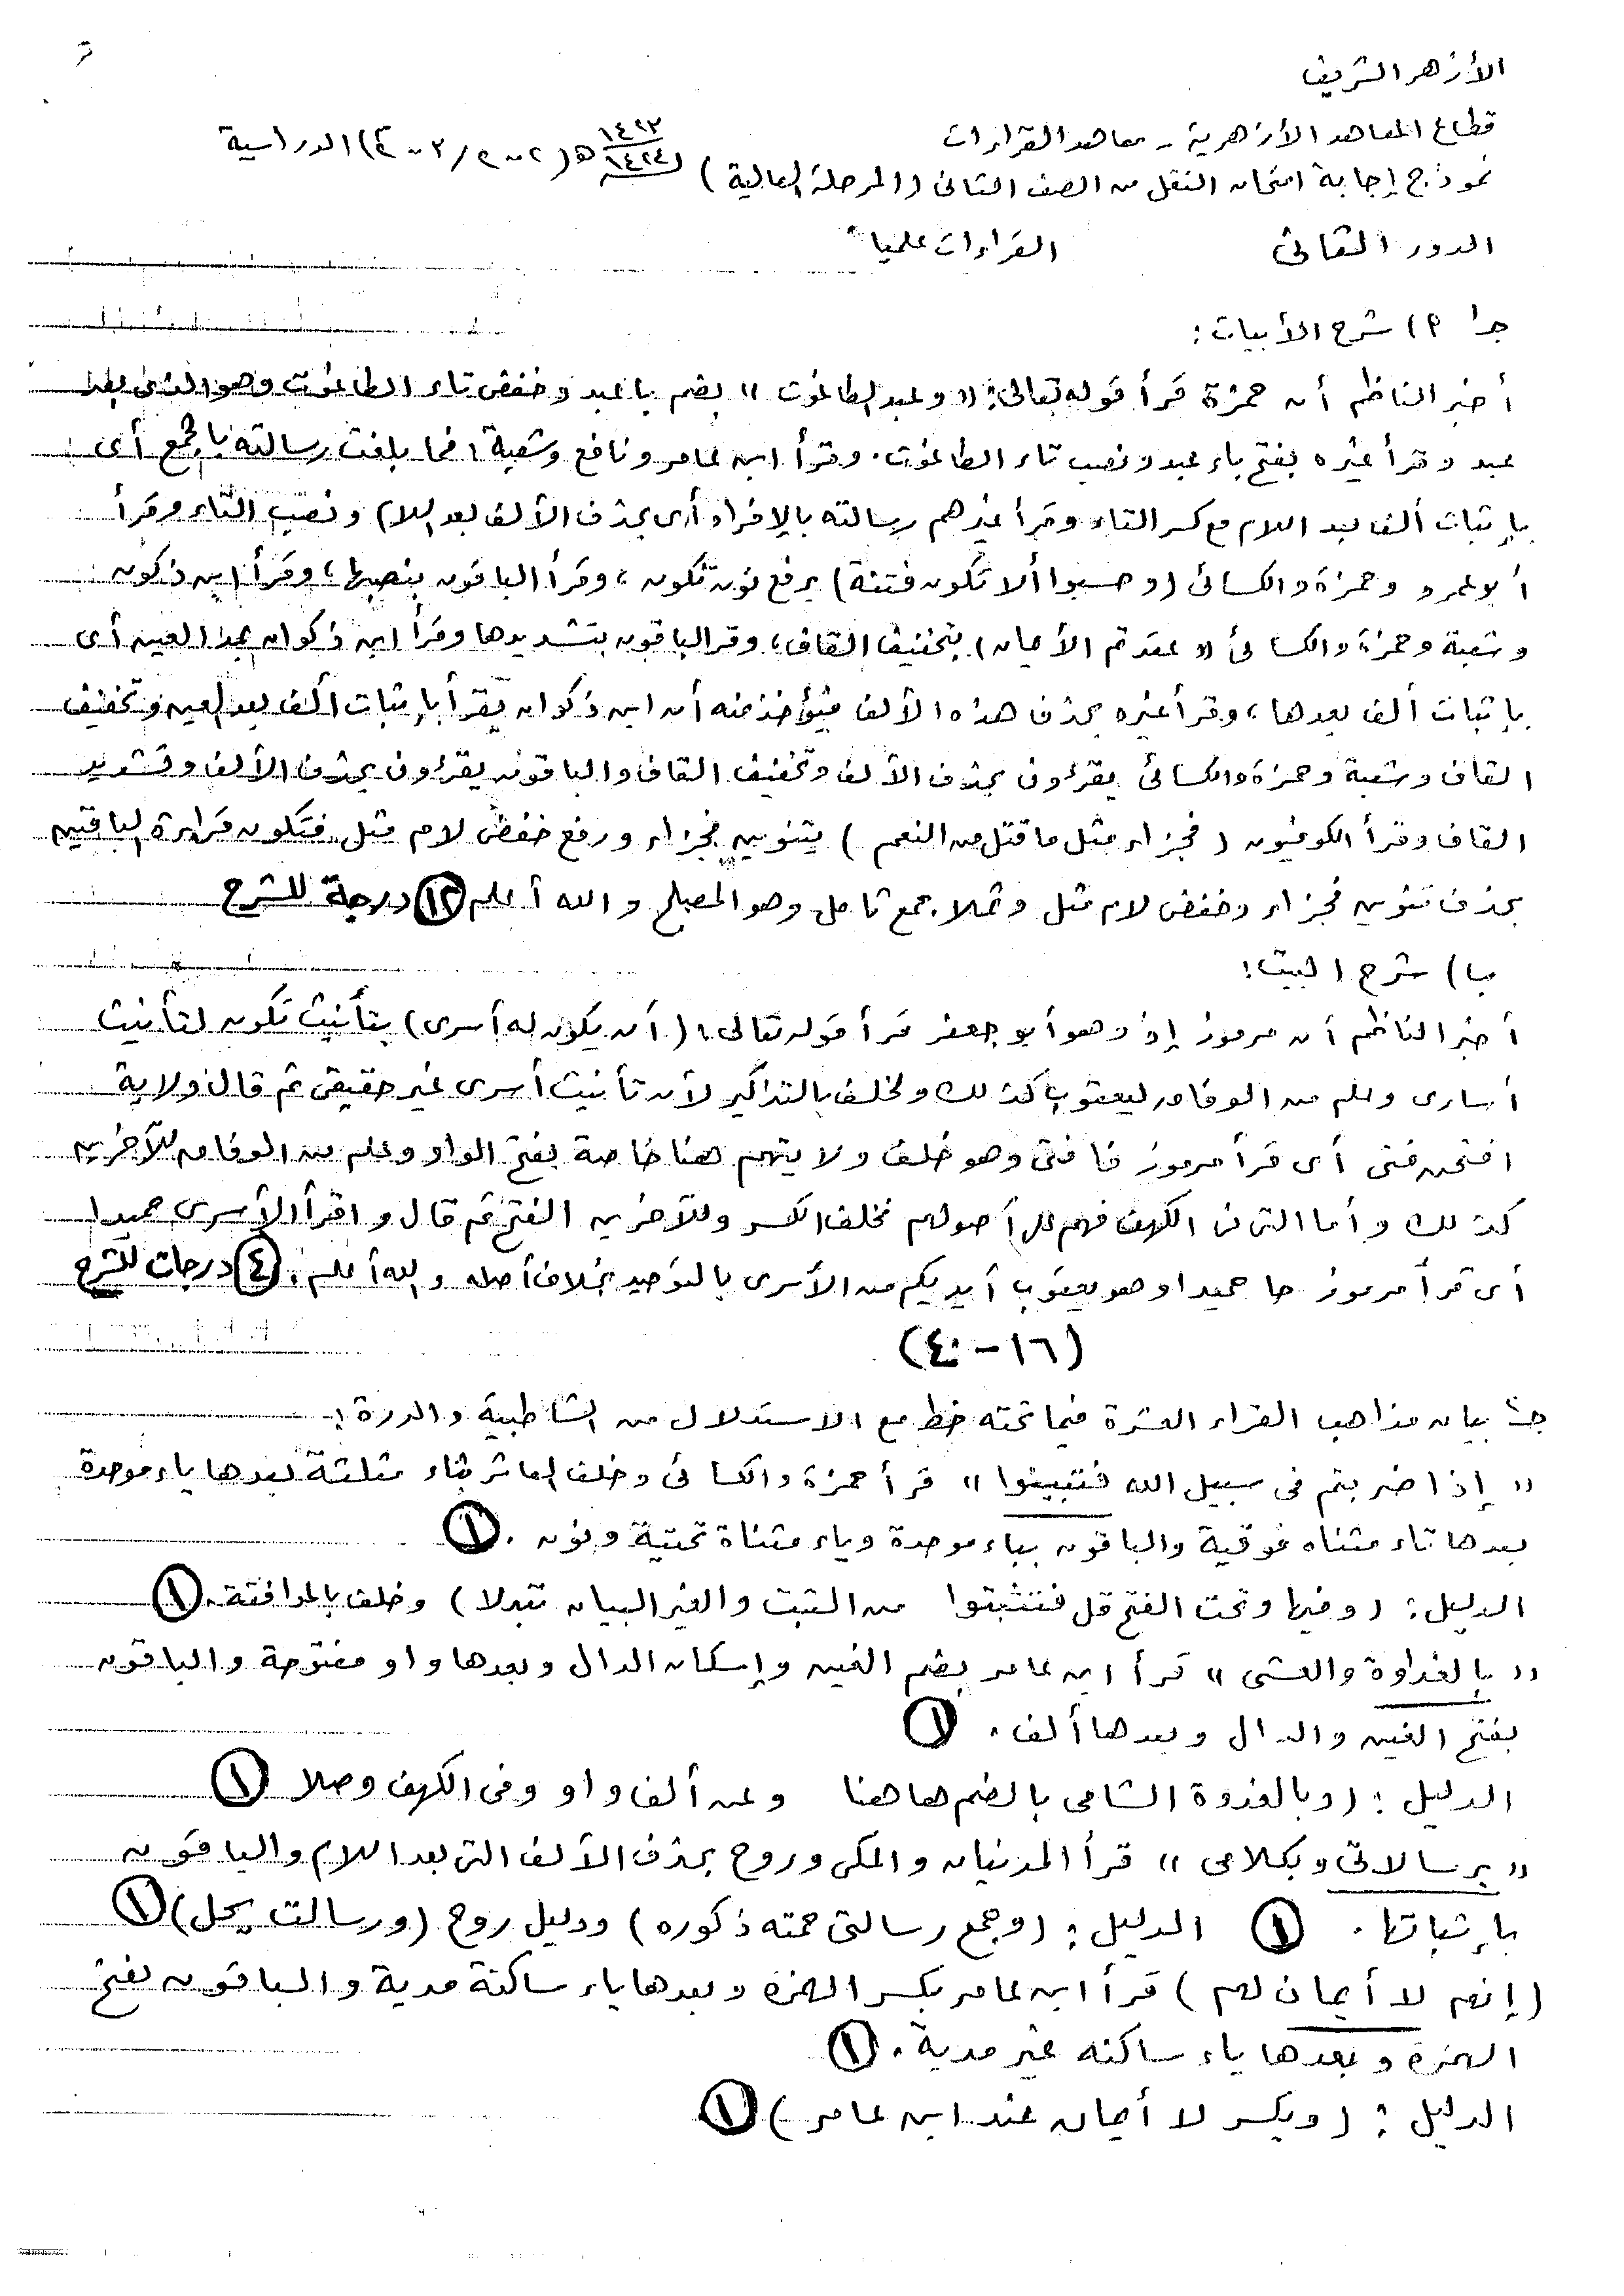 الأزهر الشريف
قطاع المعاهد الأزهرية - معاهد القراءات
نموذج إجابة امتحان النقل من الصف الثانى (المرحلة العالية) لسنة ١٤٢٣/١٤٢٤ هـ (٢٠٠٢/٢٠٠٣) الدراسية
الدور الثانى القراءات علميا
جـ١ أ) شرح الأبيات:
أخبر الناظم أن حمزة قرأ قوله تعالى: «وعبد الطاغوت» بضم باء عبد وخفض تاء الطاغوت وهو الذى بعد
عبد وقرأ غيره بفتح باء عبد ونصب تاء الطاغوت. وقرأ ابن عامر ونافع وشعبة (فما بلغت رسالته بالجمع أى
بإثبات ألف بعد اللام مع كسر التاء وقرأ غيرهم رسالته بالإفراد أى بحذف الألف بعد اللام ونصب التاء وقرأ
أبو عمرو وحمزة والكسائى (وحسبوا ألا تكون فتنة) برفع نون تكون، وقرأ الباقون بنصبها، وقرأ ابن ذكون
وشعبة وحمزة والكسائى «عقدتم الأيمان) بتخفيف القاف، وقرالباقون بتشديدها وقرأ ابن ذكوان بمد العين أى
بإثبات ألف بعدها، وقرأ غيره بحذف هذه الألف فيؤخذ منه أن ابن ذكوان يقرأ بإثبات ألف بعد العين وتخفيف
القاف وشعبة وحمزة والكسائى يقرءون بحذف الألف وتخفيف القاف والباقون يقرءون بحذف الألف وتشديد
القاف وقرأ الكوفيون (فجزاء مثل ما قتل من النعم) بتنوين فجزاء ورفع خفض لام مثل فتكون قراءة الباقين
بحذف تنوين فجزاء وخفض لام مثل وثملا جمع ثامل وهو المصلح والله أعلم (١٢) درجة للشرح
ب) شرح البيت:
أخبر الناظم أن مرموز إذ وهو أبو جعفر قرأ قوله تعالى: (أن يكون له أسرى) بتأنيث تكون لتأنيث
أسارى وعلم من الوفاق ليعقوب كذلك ولخلف بالتذكير لأن تأنيث أسرى غير حقيقى ثم قال ولاية
افتحن فتى أى قرأ مرموز فا فتى وهو خلف ولايتهم هنا خاصة بفتح الواو وعلم من الوفاق للآخرين
كذلك وأما التى فى الكهف فهم على أصولهم فخلف الكسر وللآخرين الفتح ثم قال واقرأ الأسرى حميدا
أى قرأ مرموز حا حميدا وهو يعقوب أيديكم من الأسرى بالتوحيد بخلاف أصله والله أعلم. (٤) درجات للشرح
(١٦-٤٠)
جـ٢ بيان مذاهب القراء العشرة فيما تحته خط مع الاستدلال من الشاطبية والدرة:-
«إذا ضربتم فى سبيل الله فتبينوا» قرأ حمزة والكسائى وخلف العاشر بثاء مثلثة بعدها باء موحدة
بعدها تاء مثناه فوقية والباقون بباء موحدة وياء مثناة تحتية ونون. (١)
الدليل: (وفيها وتحت الفتح قل فتثبتوا من الثبت والغير البيان تبدلا) وخلف بالموافقة. (١)
«بالغداوة والعشى» قرأ ابن عامر بضم الغين وإسكان الدال وبعدها واو مفتوحة والباقون
بفتح الغين والدال وبعدها ألف. (١)
الدليل: (وبالغدوة الشامى بالضم هاهنا وعن ألف واو وفى الكهف وصلا (١)
«برسالاتى وبكلامى» قرأ المدنيان والمكى وروح بحذف الألف التى بعد اللام والباقون
بإثباتها. (١) الدليل: (وجمع رسالتى حمته ذكوره) ودليل روح (ورسالت يحل) (١)
(إنهم لا أيمان لهم) قرأ ابن عامر بكسر الهمزة وبعدها ياء ساكنة مدية والباقون بفتح
الهمزة وبعدها ياء ساكنه غير مدية. (١)
الدليل: (ويكسر لا أيمان عند ابن عامر) (١)